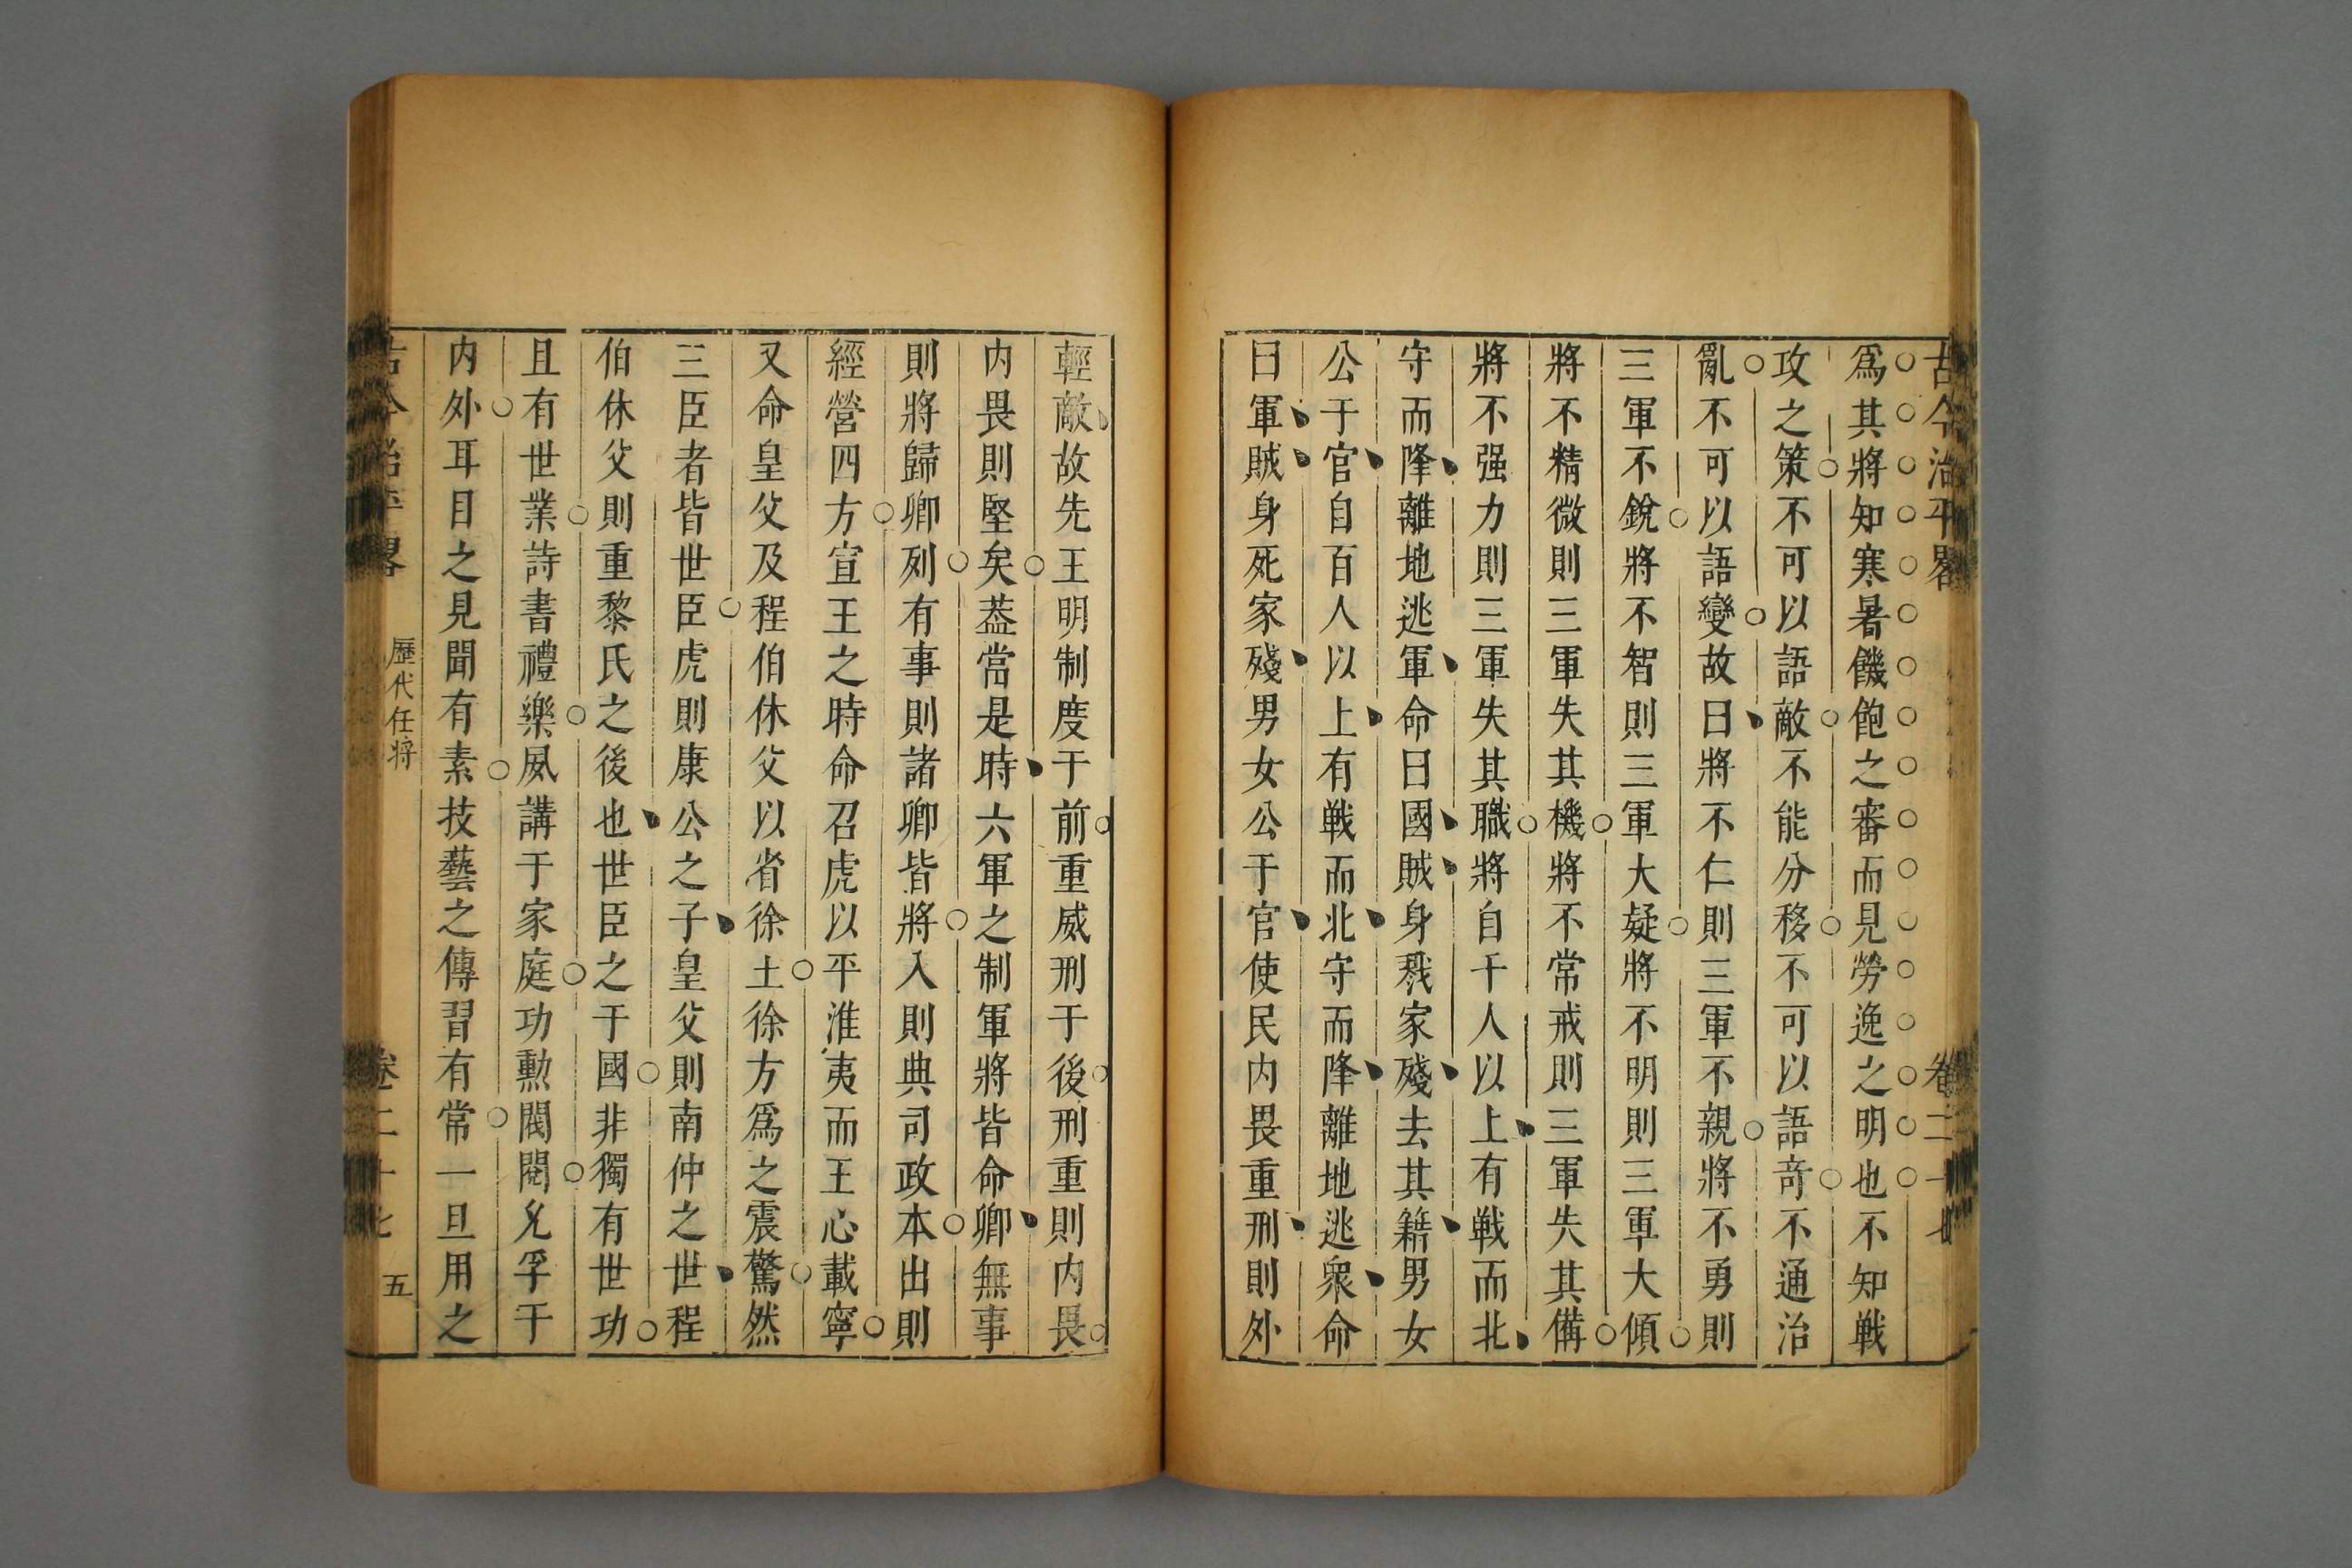 古今治平畧 卷二十七
爲其將知寒暑饑飽之審而見勞逸之明也不知戦
攻之策不可以語敵不能分移不可以語奇不通治
亂不可以語變故曰將不仁則三軍不親將不勇則
三軍不銳將不智則三軍大疑將不明則三軍大傾
將不精微則三軍失其機將不常戒則三軍失其備
將不强力則三軍失其職將自千人以上有戦而北
守而降離地逃軍命曰國賊身戮家殘去其籍男女
公于官自百人以上有戦而北守而降離地逃衆命
曰軍賊身死家殘男女公于官使民内畏重刑則外
輕敵故先王明制度于前重威刑于後刑重則内畏
内畏則堅矣葢當是時六軍之制軍將皆命卿無事
則將歸卿列有事則諸卿皆將入則典司政本出則
經營四方宣王之時命召虎以平淮夷而王心載寧
又命皇父及程伯休父以省徐土徐方爲之震驚然
三臣者皆世臣虎則康公之子皇父則南仲之世程
伯休父則重黎氏之後也世臣之于國非獨有世功
且有世業詩書禮樂夙講于家庭功勲閥閱允孚于
内外耳目之見聞有素技藝之傳習有常一旦用之
古今治平畧 歷代任將 卷二十七 五